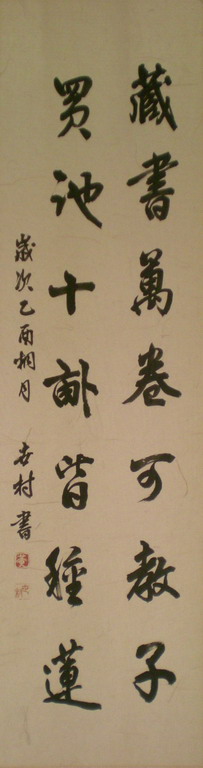 藏書萬卷可教子
買池十畝皆種蓮
歲次乙酉桐月 書